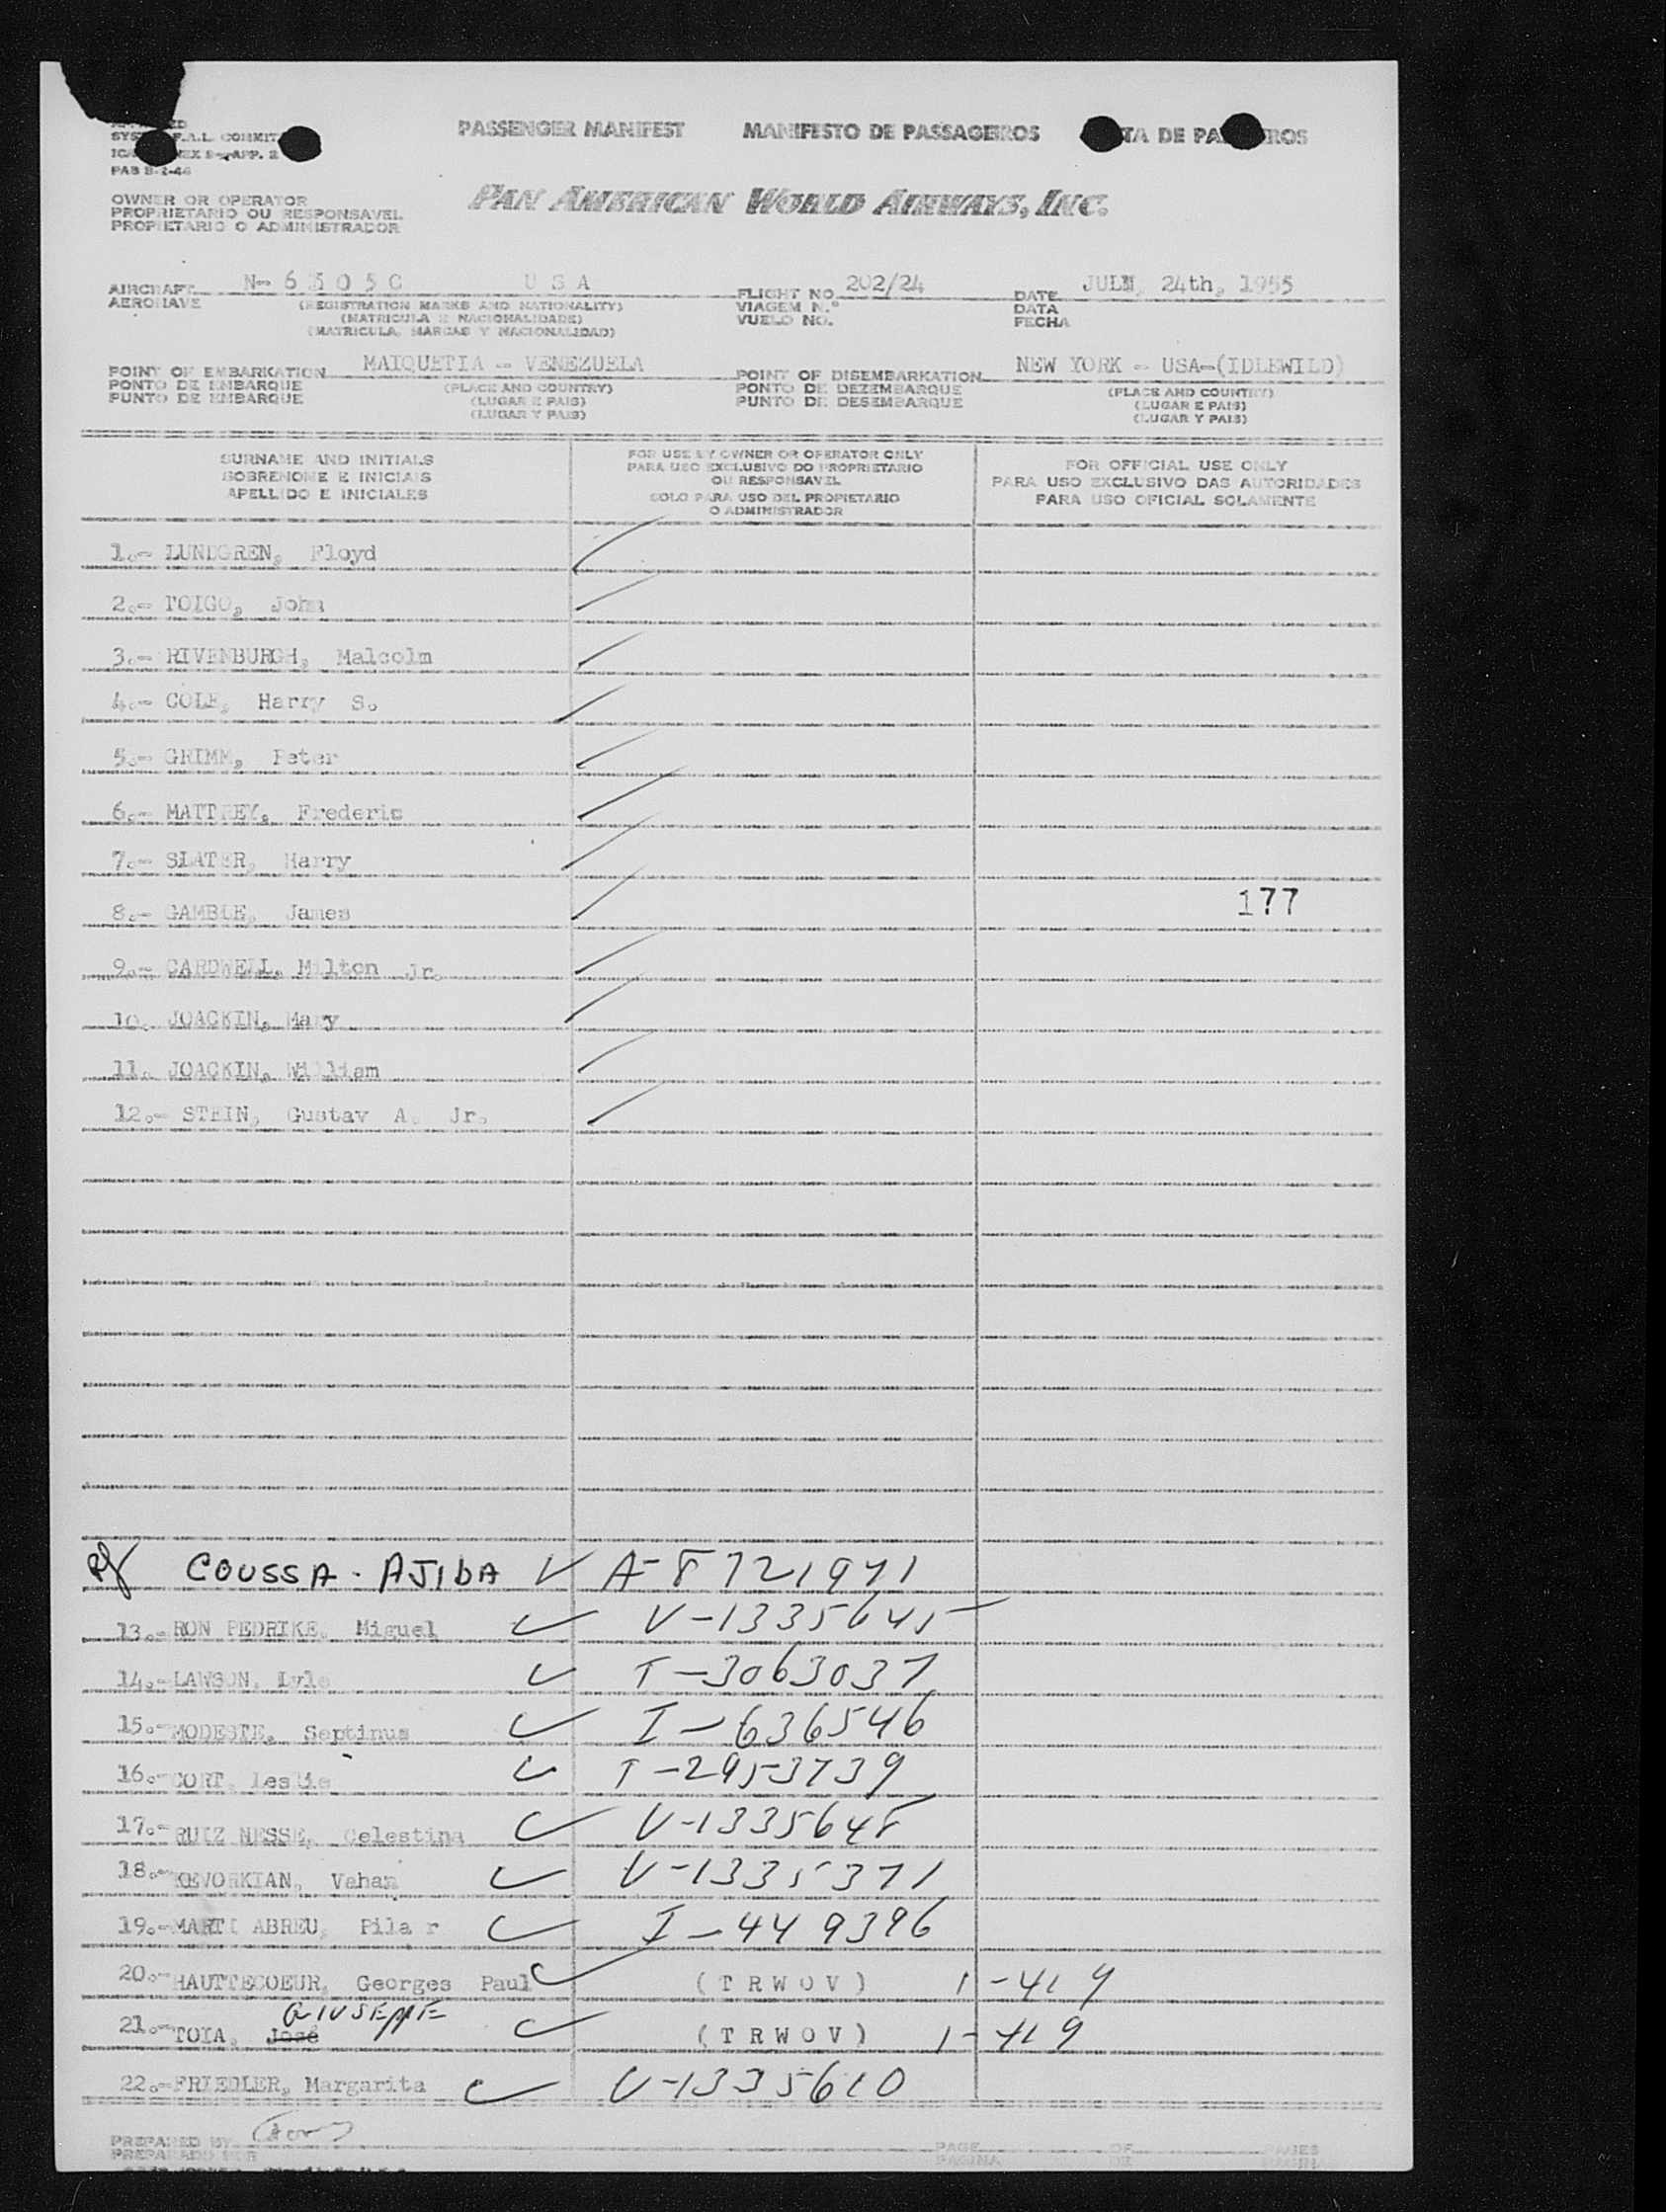 SYST F.A.L. COMMIT
PAB 8-2-46
PASSENGER MANIFEST MANIFESTO DE PASSAGEIROS TA DE PA ROS
OWNER OR OPERATOR
PROPRIETARIO OU RESPONSAVEL
PROPIETARIO O ADMINISTRADOR
PAN AMERICAN WORLD AIRWAYS, INC.
AIRCRAFT N- 6 5 0 5 C U S A FLIGHT NO. 202/24 DATE JULY, 24th, 1955
AERONAVE (REGISTRATION MARKS AND NATIONALITY) VIAGEM N.º DATA
(MATRICULA E NACIONALIDADE) VUELO NO. FECHA
(MATRICULA, MARCAS Y NACIONALIDAD)
POINT OF EMBARKATION MAIQUETIA - VENEZUELA POINT OF DISEMBARKATION NEW YORK - USA-(IDLEWILD)
PONTO DE EMBARQUE (PLACE AND COUNTRY) PONTO DE DEZEMBARQUE (PLACE AND COUNTRY)
PUNTO DE EMBARQUE (LUGAR E PAIS) PUNTO DE DESEMBARQUE (LUGAR E PAIS)
(LUGAR Y PAIS) (LUGAR Y PAIS)
SURNAME AND INITIALS
SOBRENOME E INICIAIS
APELLIDO E INICIALES
FOR USE BY OWNER OR OPERATOR ONLY
PARA USO EXCLUSIVO DO PROPRIETARIO
OU RESPONSAVEL
SOLO PARA USO DEL PROPIETARIO
O ADMINISTRADOR
FOR OFFICIAL USE ONLY
PARA USO EXCLUSIVO DAS AUTORIDADES
PARA USO OFICIAL SOLAMENTE
1.- LUNDGREN, Floyd
2.- TOIGO, John
3.- RIVENBURGH, Malcolm
4.- COLE, Harry S.
5.- GRIMM, Peter
6.- MATTREY, Frederic
7.- SLATER, Harry
8.- GAMBLE, James 177
9.- CARDWELL, Milton Jr.
10. JOACKIN, Mary
11. JOACKIN, William
12.- STEIN, Gustav A. Jr.
COUSSA - AJIDA A-8721971
13.- RON PEDRIKE, Miguel V-1335645
14.- LAWSON, Lyle T-3063037
15.- MODESTE, Septinus I-636546
16.- CORT, Leslie T-2953739
17.- RUIZ NESSE, Celestina V-1335648
18.- KEVORKIAN, Vahan V-1335371
19.- MARTI ABREU, Pila r I-449396
20.- HAUTTECOEUR, Georges Paul ( T R W O V ) 1-419
GIUSEPPE
21.- TOIA, José ( T R W O V ) 1-419
22.- FRIEDLER, Margarita V-1335610
PREPARED BY PAGE OF PAGES